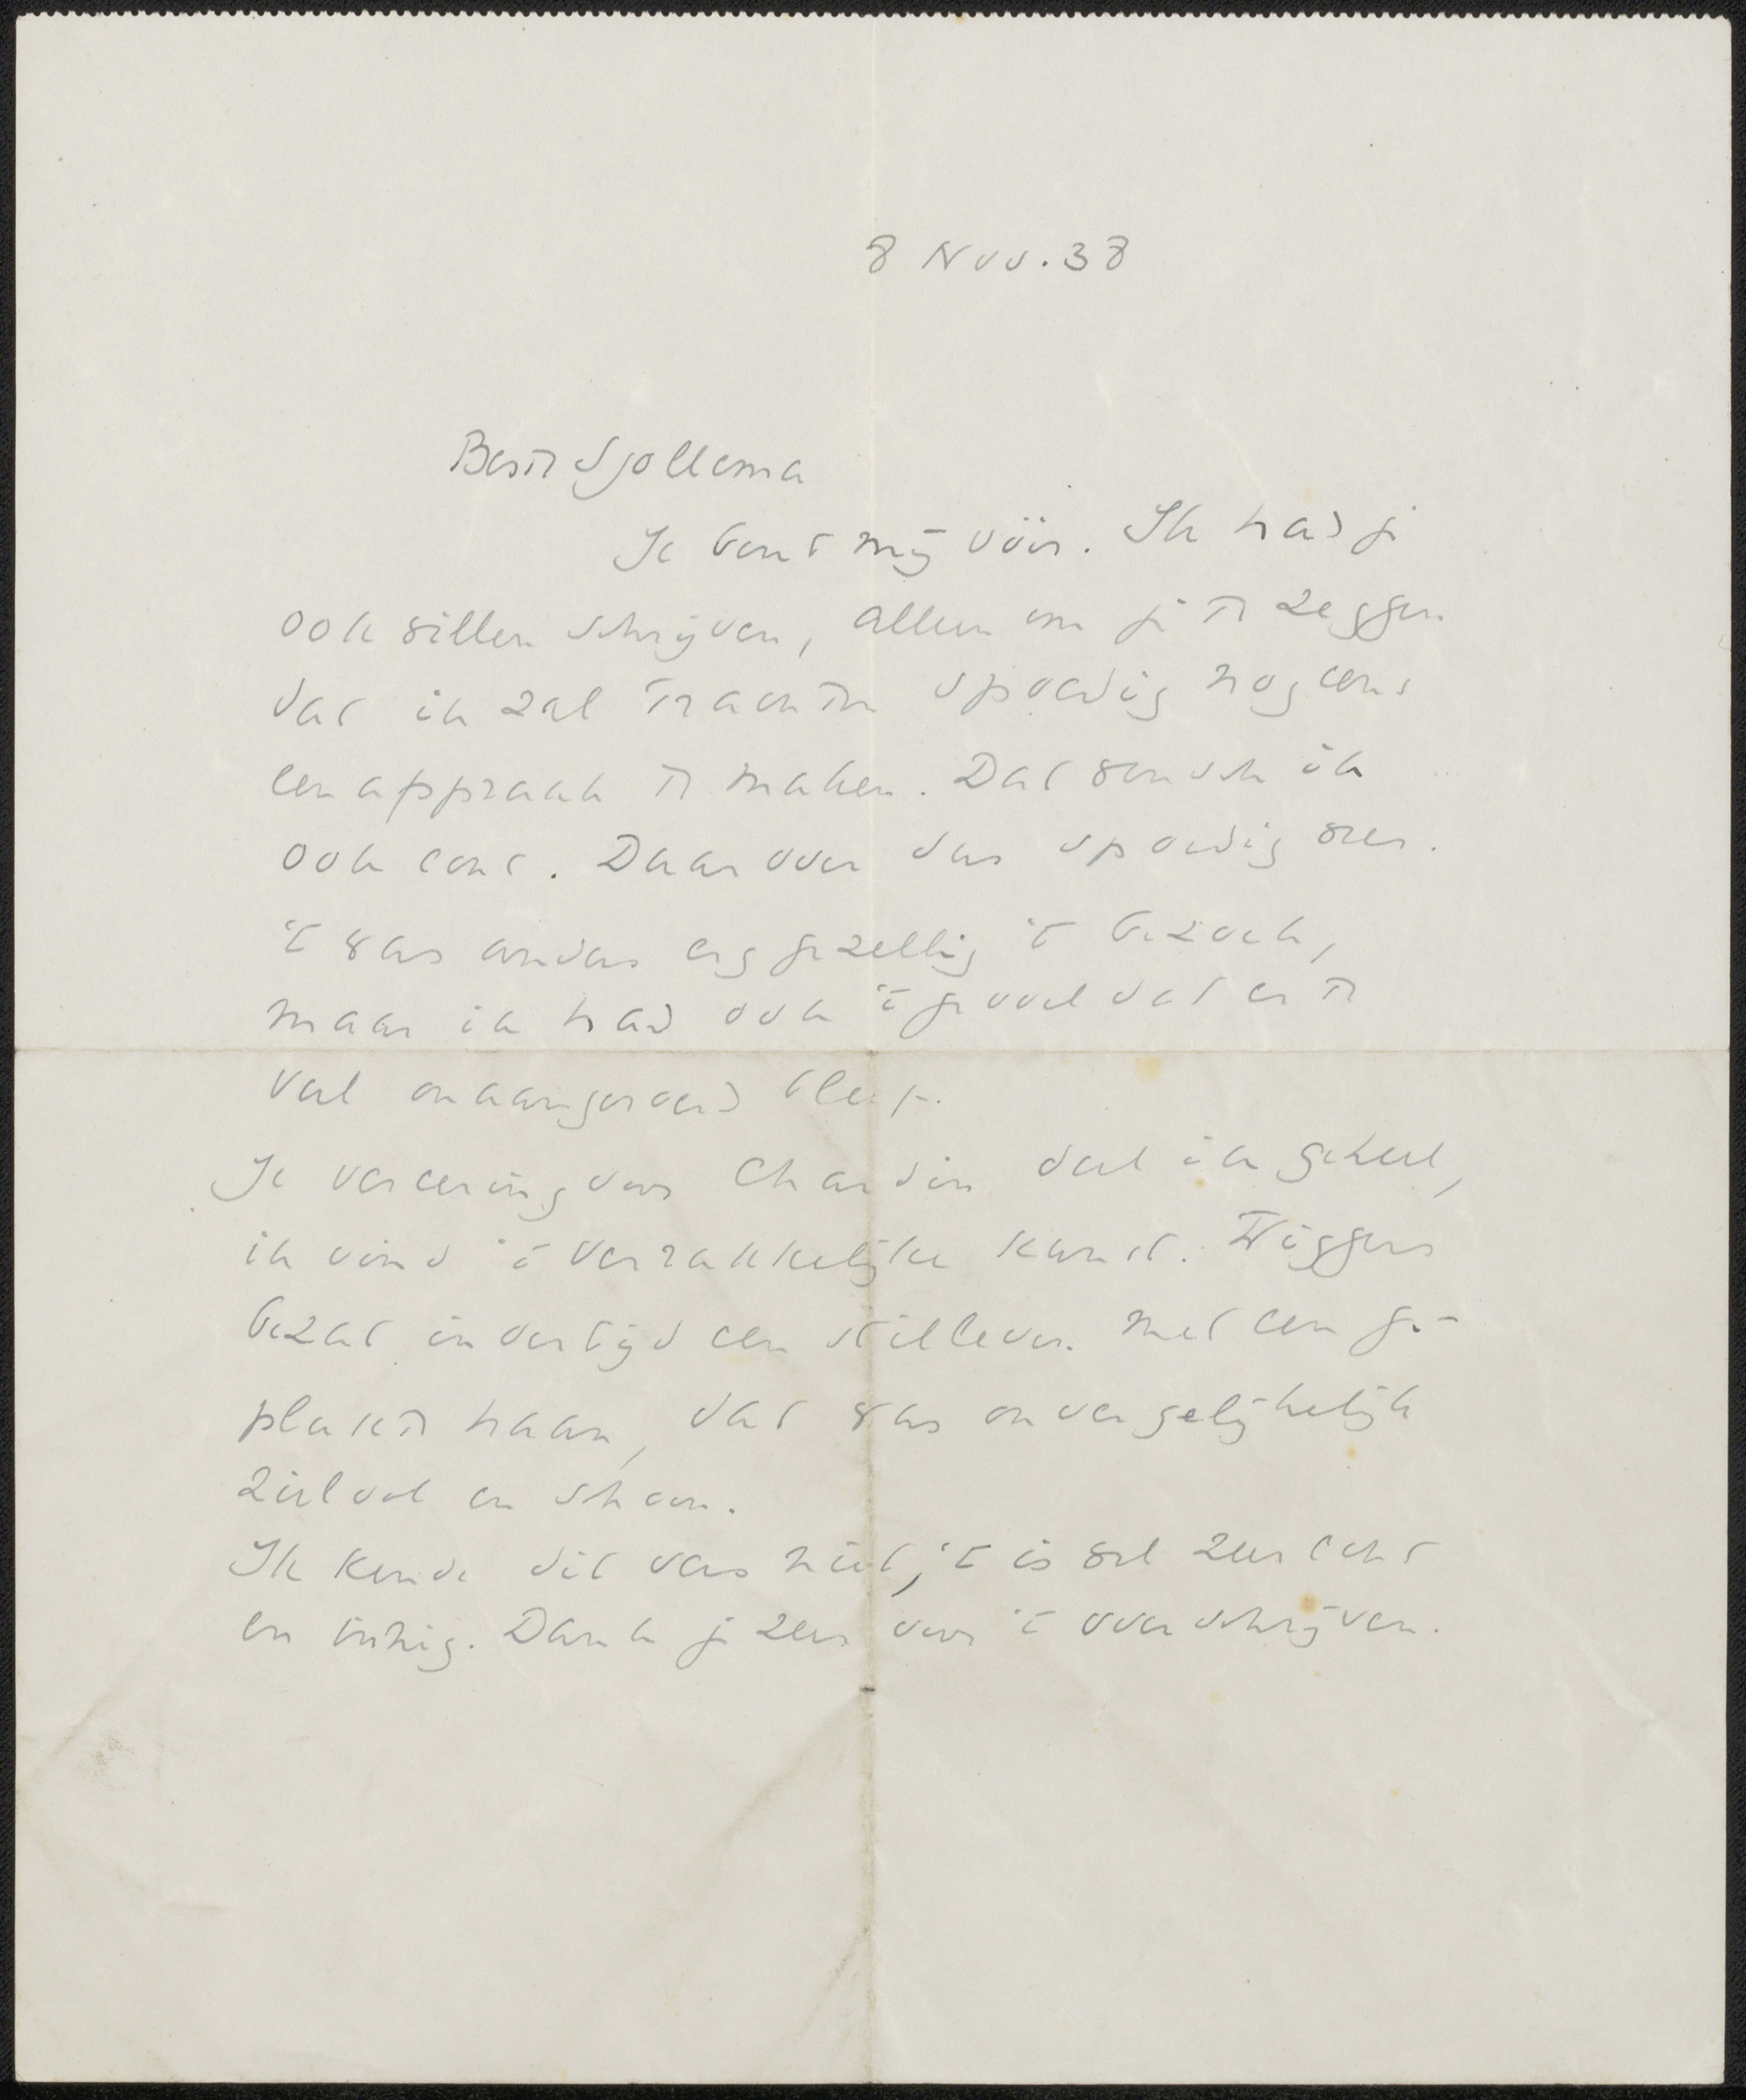 8 Nov. 38
Beste Sjollema
Je bent mij vóór. Ik had je
ook willen schrijven, alleen om je te zeggen
dat ik zal trachten spoedig nog eens
een afspraak te maken. Dat wensch ik
ook echt. Daarover dus spoedig weer.
't was anders erg gezellig 't bezoek,
maar ik had ook 't gevoel dat er te
veel onaangeroerd bleef.
Je vereering voor Chardin deel ik geheel,
ik vind 't verrukkelijke kunst. Wiggers
bezat indertijd een stilleven met een ge-
plukte haan, dat was onvergelijkelijk
zielvol en schoon.
Ik kende dit vers niet, 't is wel zeer echt
en innig. Dank je zeer voor 't overschrijven.